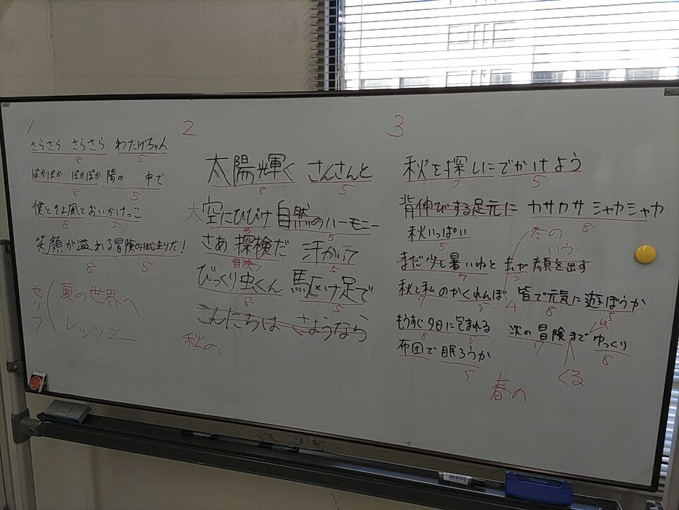 1
さらさら さらさら わたげちゃん
8 5
ぽかぽか ぽかぽか 陽の 中で
8 5
僕とそよ風とおいかけっこ
8 5
笑顔が溢れる冒険のはじまりだ!
8 5
セリフ
夏の世界へ
レッツゴー
2
太陽輝く さんさんと
8 5
大空にひびけ 自然のハーモニー
8 5
さあ 探検だ 汗かいて
冒険 5
びっくり虫くん 駆け足で
8 5
こんにちは さようなら
秋の
3
秋を探しにでかけよう
7 5
背伸びする足元に カサカサ シャカシャカ
8
秋いっぱい
5
まだ少し暑いねと 顔を出す
7 5
秋と私のかくれんぼ 皆で元気に遊ぼうか
もうすぐ夕日に包まれる 次の冒険まで ゆっくり
8
布団で眠ろうか
5
くる
春の